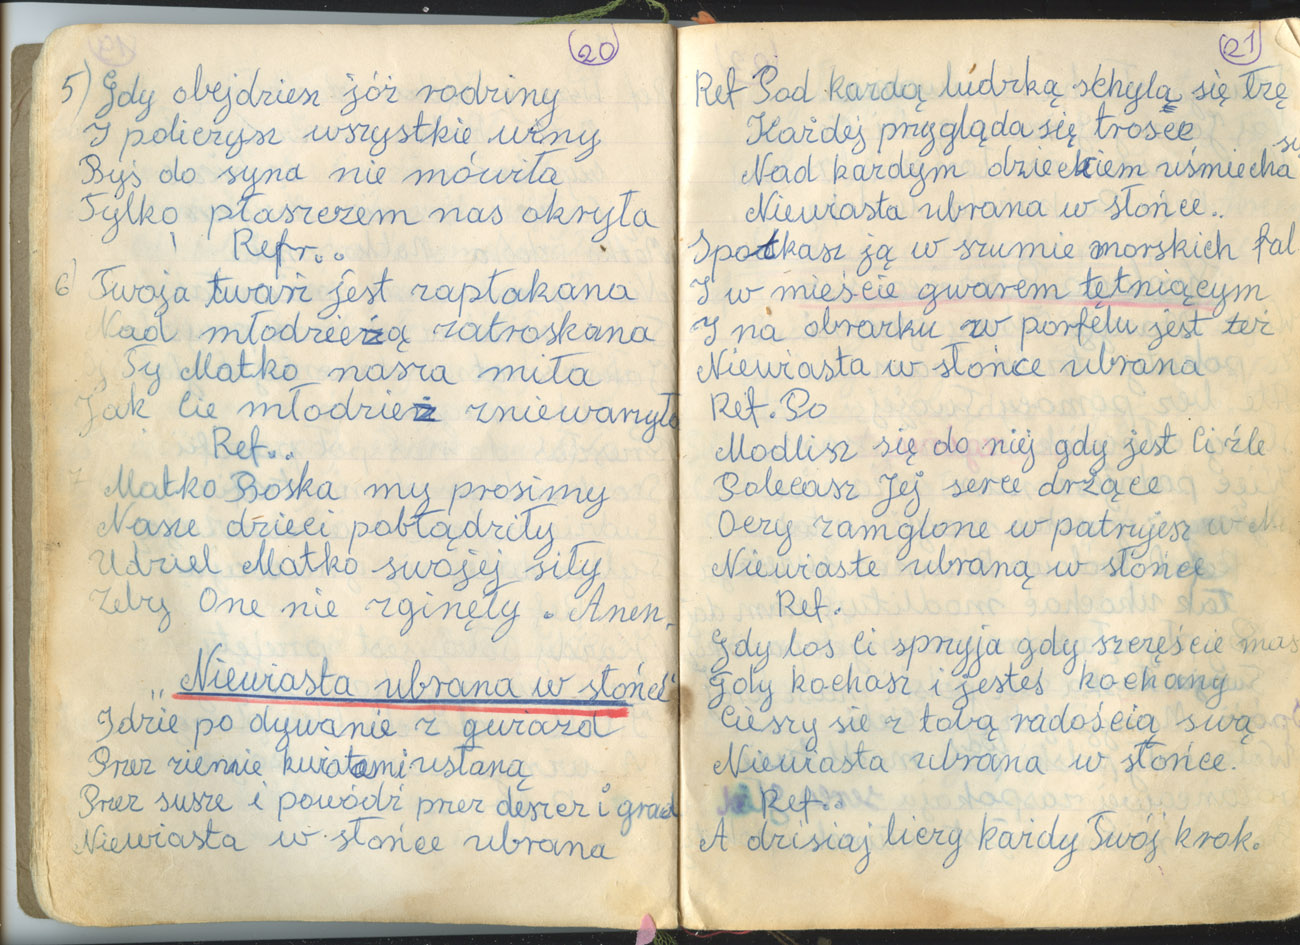 20
5) Gdy obejdziesz jóż rodziny
I policzysz wszystkie winy
Byś do syna nie mówiła
Tylko płaszczem nas okryła
Refr..
6) Twoja twarz jest zapłakana
Nad młodzieżą zatroskana
Ty Matko nasza miła
Jak Cie młodzież zniewarzyła
Ref..
7 Matko Boska my prosimy
Nasze dzieci pobłądziły
Udziel Matko swojej siły
Żeby One nie zginęły. Amen.
„Niewiasta ubrana w słońce"
Idzie po dywanie z gwiazd
Przez ziemie kwiatami usłaną
Przez susze i powódź przez deszcz i grad
Niewiasta w słońce ubrana
21
Ref Pod każdą ludzką schyla się łzę
Każdej przygląda się trosce
Nad każdym dzieckiem uśmiecha się
Niewiasta ubrana w słońce..
Spotkasz ją w szumie morskich fal
I w mieście gwarem tętniącym
I na obrazku w porfelu jest też
Niewiasta w słońce ubrana
Ref. Po
Modlisz się do niej gdy jest Ci źle
Polecasz Jej serce drżące
Oczy zamglone w patrujesz w
Niewiaste ubraną w słońce
Ref.
Gdy los Ci spryja gdy szczęście mas
Gdy kochasz i jesteś kochany
Cieszy sie z tobą radością swą
Niewiasta ubrana w słońce.
Ref..
A dzisiaj liczy każdy Twój krok.